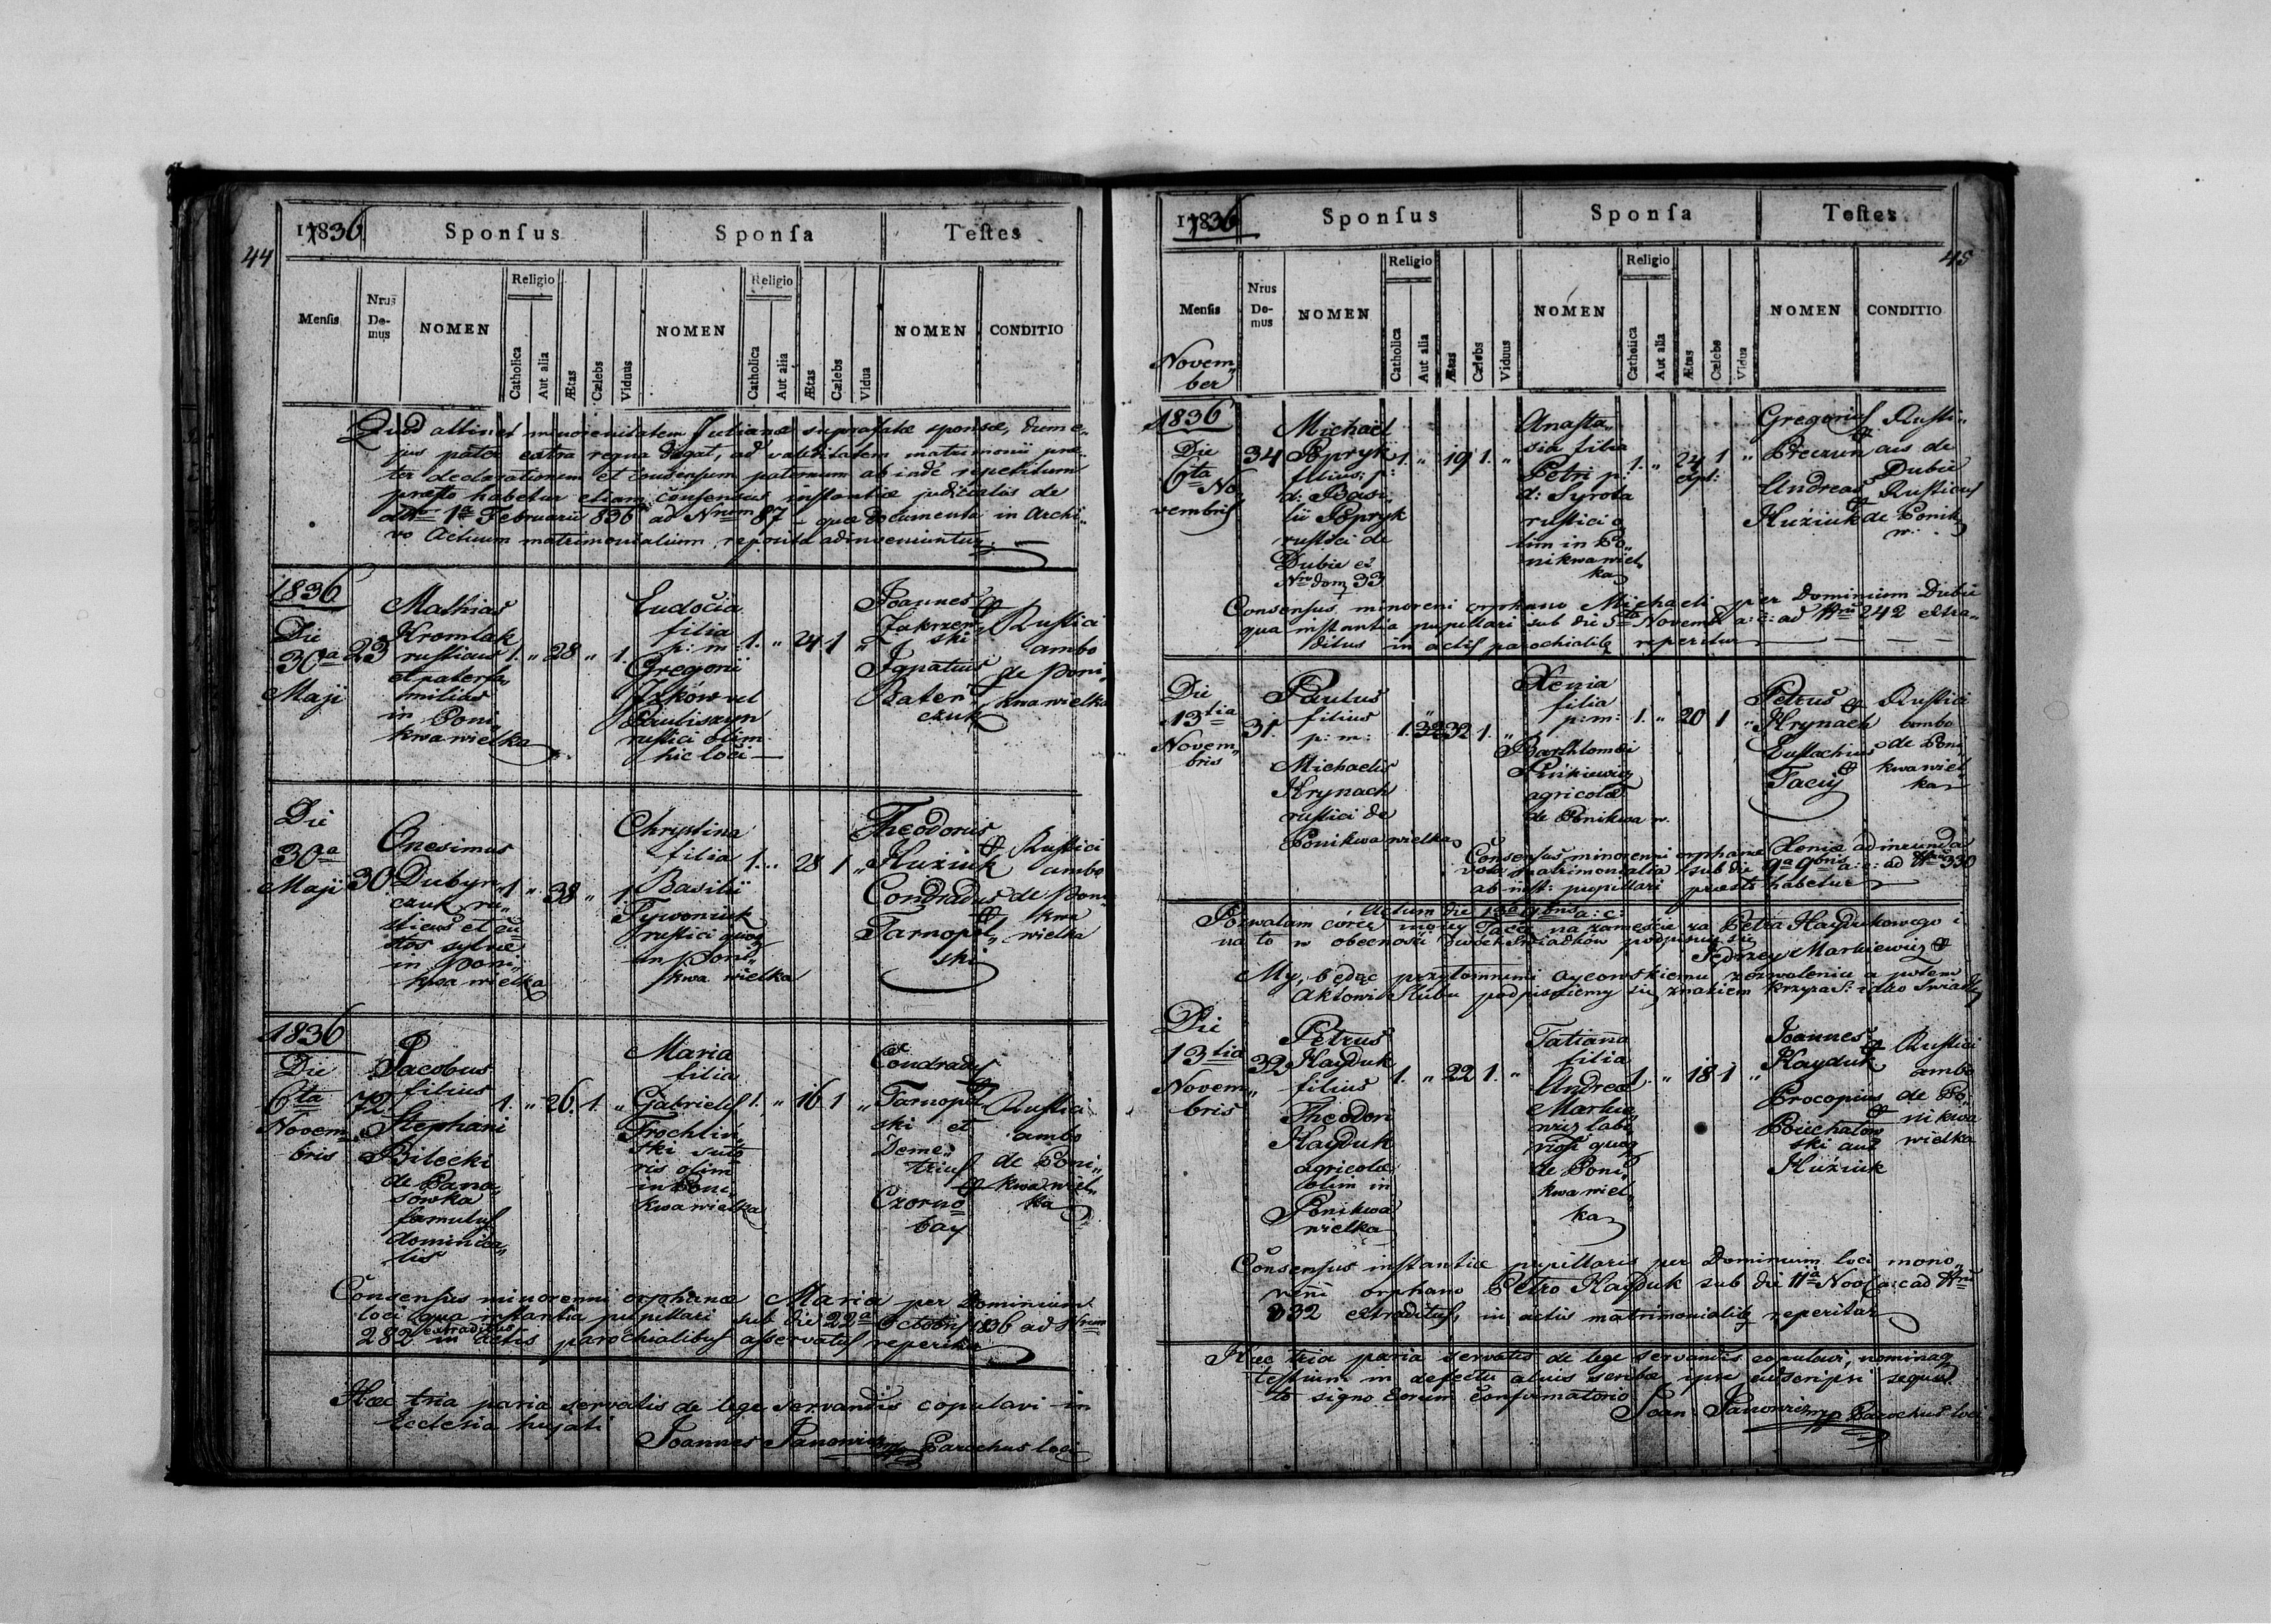 44
1836
Sponſus
Sponſa
Teſtes
Menſis
Nrus
De-
mus
NOMEN
Religio
Catholica
Aut alia
Ætas
Cælebs
Viduus
NOMEN
Religio
Catholica
Aut alia
Ætas
Cælebs
Vidua
NOMEN
CONDITIO
Quod attinet minorenitatem Julianæ suprafatæ sponsæ, dum e„
jus pater extra regna degat, ad validitatem matrimonii præ„
ter declarationem et consensum paternum ab inde repetitum
præsto habetur etiam consensus instantiæ judicialis de
1a Februarii 836 ad Nrum 87 – quæ documenta in Archi„
vo Actuum matrimonialium reposita adinveniuntur
1836
Die
30a
Maji
23
Mathias
Kromlak
rusticus
et paterfa„
milias
in Poni„
kwa wielka
1. „ 28 „ 1.
Eudocia
filia
p: m:
Gregorii
vel
rustici olim
hic loci
1. „ 24 1 „
Joannes
Zakrzew„
ski
Ignatius
Bater„
czuk
Rustici
ambo
de Poni„
kwa wielka
Die
30a
Maji
30
Onesimus
Dubyn„
czuk ru„
sticus et cu„
stos sylvæ
in Poni„
kwa wielka
1 „ 38 „ 1
Christina
filia
Basilii
Tywoniuk
rustici quoq
in Poni„
kwa wielka
1. „ 28 1 „
Theodorus
Huziuk
Condradus
Tarnopol„
ski
Rustici
ambo
de Poni„
kwa
wielka
1836
Die
6ta
Novem„
bris
72.
Jacobus
filius
Stephani
Bilecki
de Pana„
sowka
famulus
dominica„
lis
1. „ 26. 1. „
Maria
filia
Gabrielis
Trochlin„
ski suto„
ris olim
in Poni„
kwa wielka
1. „ 16 1 „
Condradus
Tarnopol„
ski et
Deme„
trius
Czorno„
bay
Rustici
ambo
de Poni„
kwa wiel„
ka
Consensus minorenni orphanæ Maria per Dominium
loci qua instantia pupillari sub die 22a Octobris 1836 ad Nrum
282 extraditus in Actis parochialibus asservatus reperitur
Hæc tria paria servatis de lege servandis copulavi in
Ecclesia hujati
Joannes Janowicz mp Parochus loci
45
1836
Sponſus
Sponſa
Teſtes
Menſis
Nrus
De-
mus
NOMEN
Religio
Catholica
Aut alia
Ætas
Cælebs
Viduus
NOMEN
Religio
Catholica
Aut alia
Ætas
Cælebs
Vidua
NOMEN
CONDITIO
Novem„
ber
1836
Die
6ta No„
vembris
34
Michael
Popryk
filius p:
d: Basi„
lii Popryk
rustici de
Dubie ex
Nro dom 33
1. „ 19 1. „
Anasta„
sia filia
Petri p:
d: Syrota
rustici o„
lim in Po„
nikwa wiel„
ka
1. „ 24 1 „
Gregorius
Andreas
Huziuk
Rusti„
cus de
Dubie
Rusticus
de Ponik
w.
Consensus minoreni orphano Michaeli per Dominium Dubie
qua instantia pupillari sub die 5ta Novemb a: c: ad Nrum 242 extra„
ditus in actis parochialibq reperitur
Die
13tia
Novem„
bris
31.
Paulus
filius
p: m:
Michaelis
Hrynach
rustici de
Ponikwa wielka
1. „ 32 1. „
Xenia
filia
p: m:
Barthlomei
Pinkiewicz
agricolæ
de Ponikwa w.
1. „ 20 1 „
Petrus
Hrynach
Eustachius
Taciy
Rustici
ambo
de Poni
kwa wiel„
ka
Consensus minorenni orphanæ Xeniæ ad ineunda
vota matrimonialia sub die 9a 9bris a: c: ad Nrum 330
ab inst: pupillari præsto habetur
Actum die 13a 9bris a: c:
Pozwalam córce mojey Tacce na zamęście za Petra Haydukowego i
na to w obecności dwóch Swiadków podpisuję się
Jędrzey Markiewicz
My, będąc przytomnemi oycowskiemu zezwoleniu a potem
Aktowi Slubu podpisujemy się znakiem krzyża S: jako Swiadki
Die
13tia
Novem„
bris
32
Petrus
Hayduk
filius
Theodori
Hayduk
agricolæ
olim in
Ponikwa
wielka
1. „ 22 1. „
Tatianna
filia
Andreæ
Markie„
wicz labo„
riosi quoq
de Poni„
kwa wiel„
ka
1. „ 18 1 „
Joannes
Hayduk
Procopius
Pouchalow„
ski aut
Huziuk
Rustici
ambo
de Po„
nikwa
wielka
Consensus instantiæ pupillaris per Dominium loci mono„
reni orphano Petro Hayduk sub die 11a Nov a: c ad Nrum
332 extraditus, in actis matrimonialibq reperitur
Hæc tria paria servatis de lege servandis copulavi, nominaq
testium in defectu alius scribæ ipse subscripsi sequu„
to signo eorum confirmatorio
Joan: Janowicz mp Parochus loci